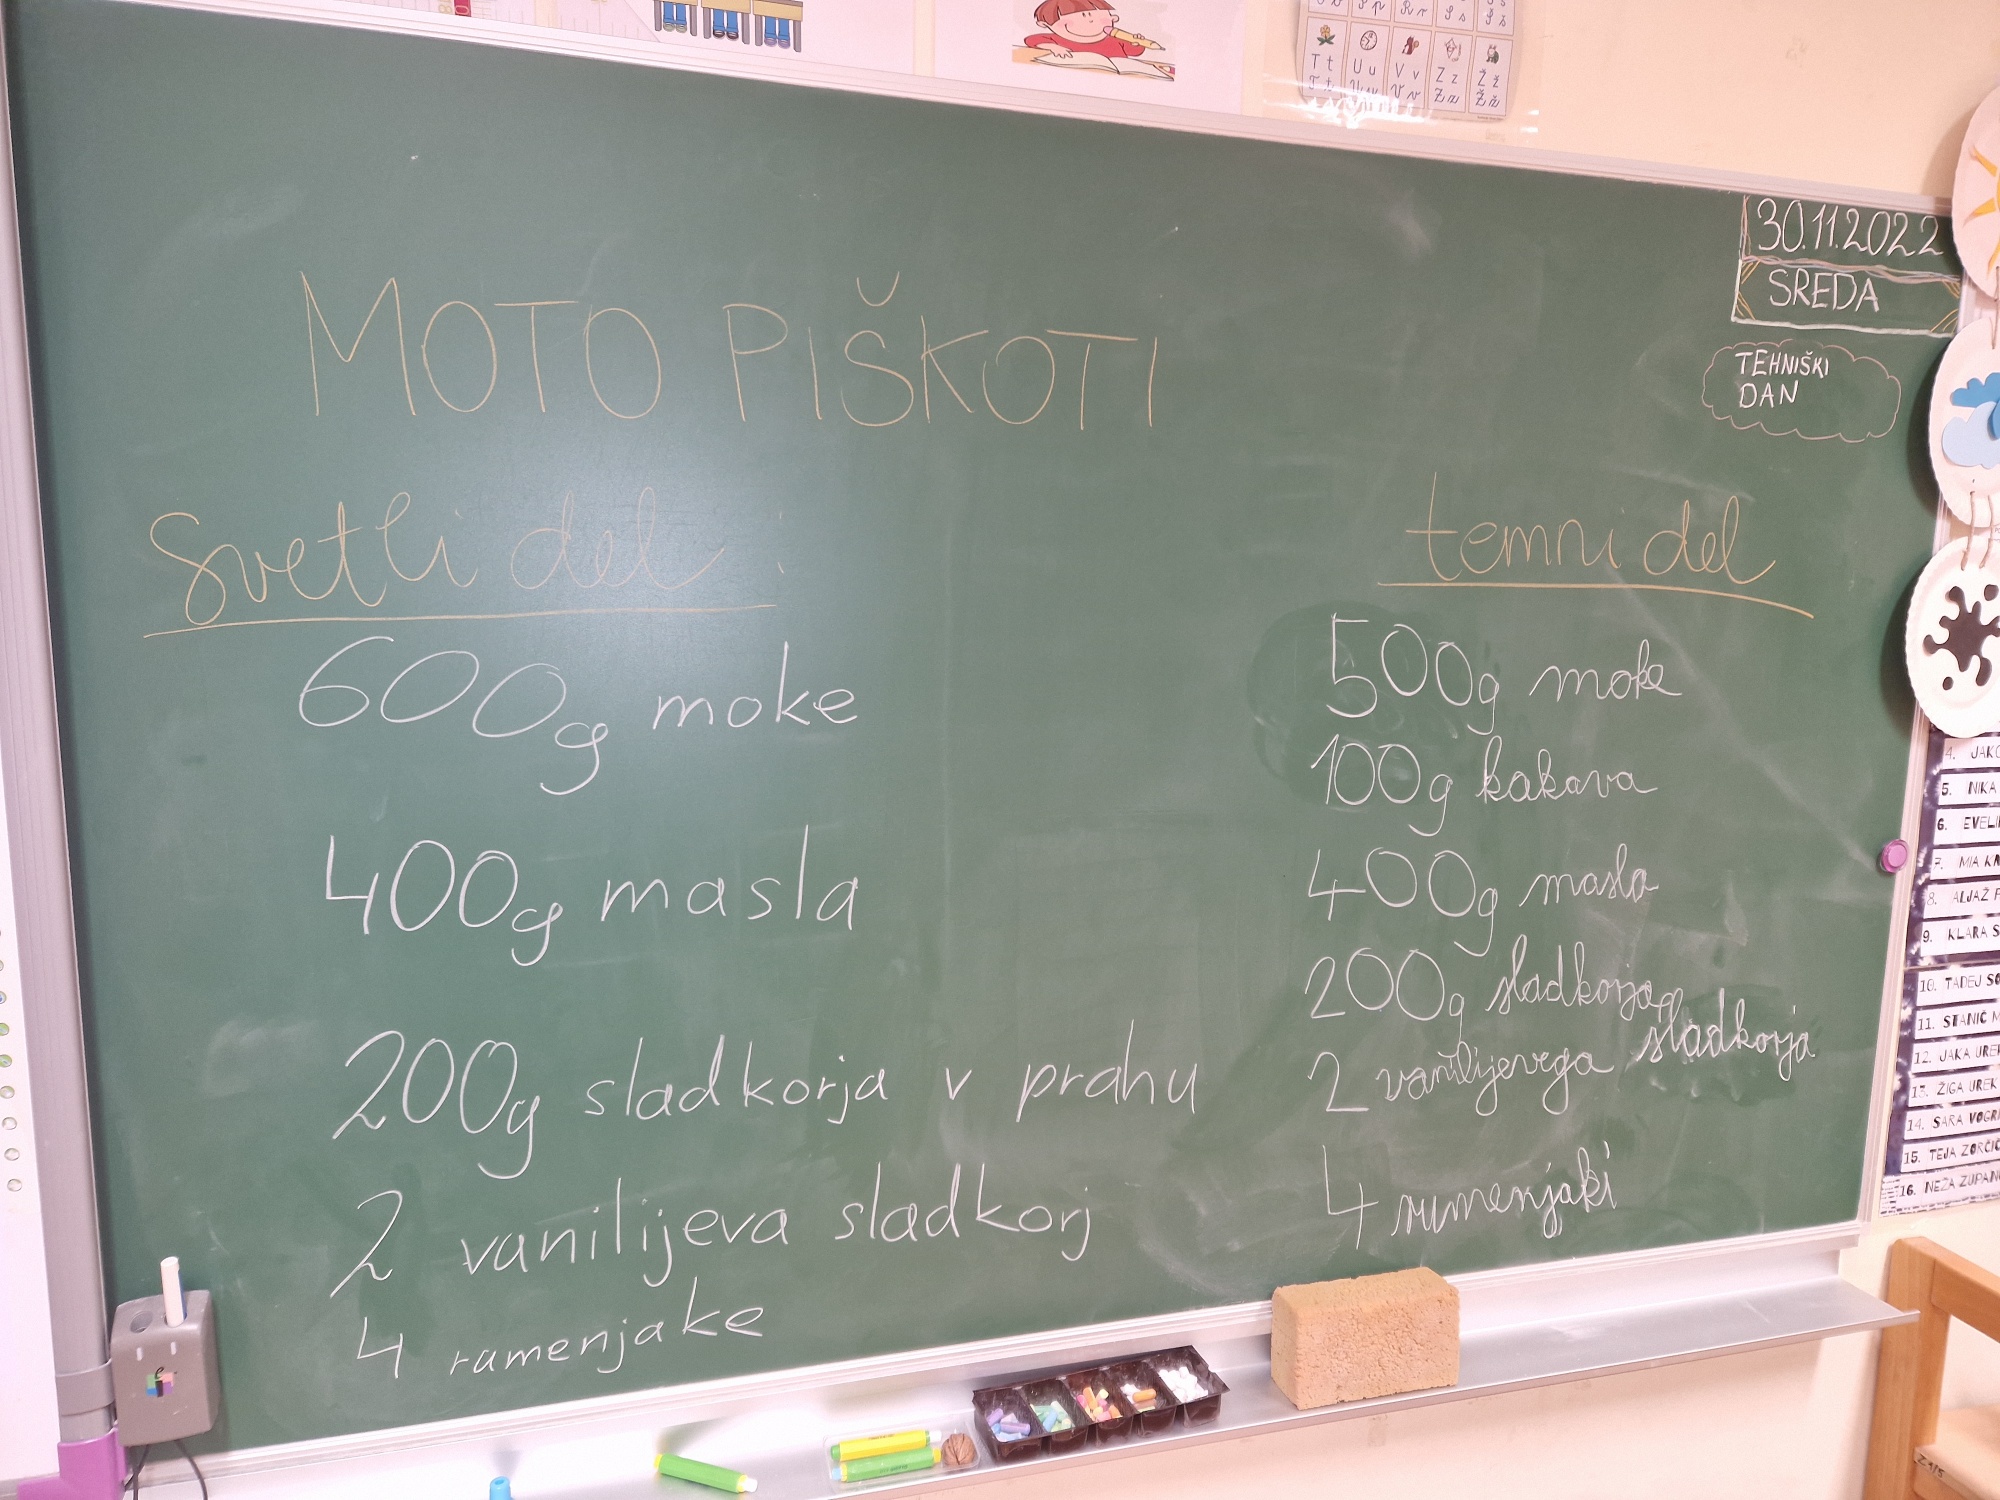 T t U u V v Z z Ž ž
T t U u V v Z z Ž ž
30.11.2022
SREDA
TEHNIŠKI
DAN
MOTO PIŠKOTI
Svetli del :
600g moke
400g masla
200g sladkorja v prahu
2 vanilijeva sladkorj
4 rumenjake
temni del
500g moke
100g kakava
400g masla
200g sladkorja
2 vanilijevega sladkorja
4 rumenjaki
4. JAKO
5. NIKA
6. EVELI
7. MIA KN
8. ALJAŽ P
9. KLARA S
10. TADEJ SO
11. STANIČ M
12. JAKA UREK
13. ŽIGA UREK
14. SARA VOGRI
15. TEJA ZORČIČ
16. NEŽA ZUPAN